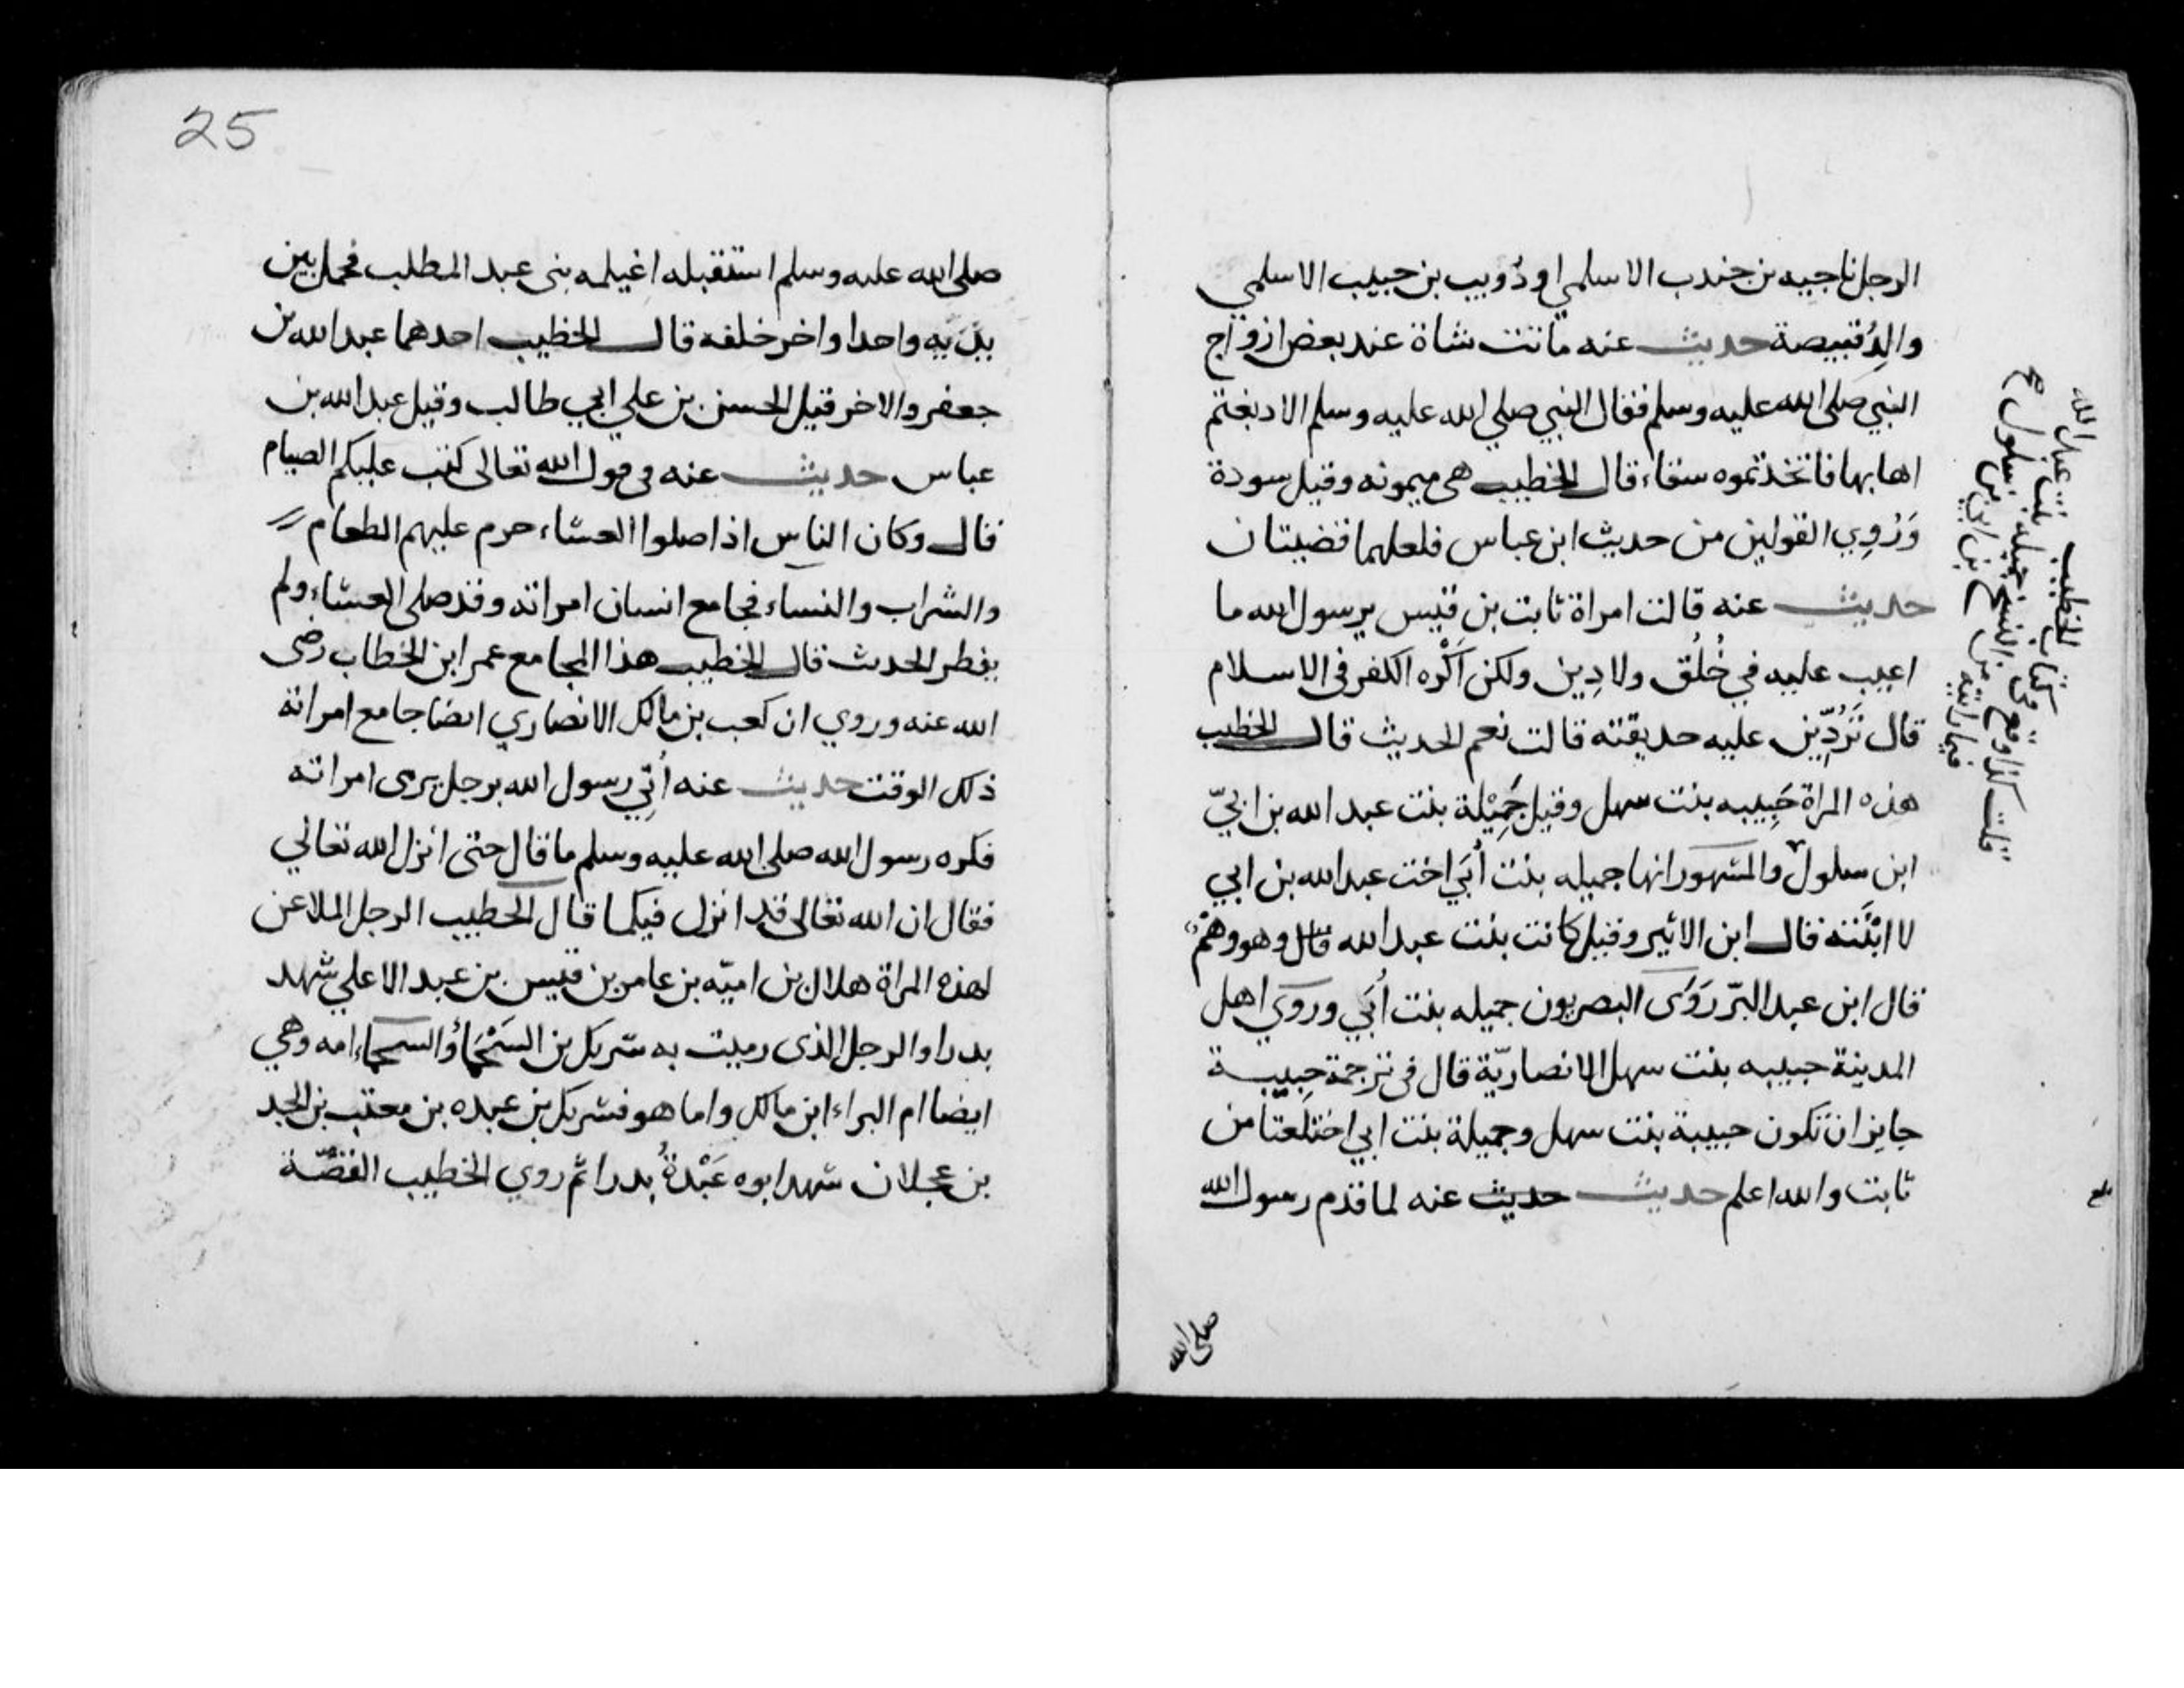 الرجل ناجيه بن جندب الاسلمي او ذُويب بن حبيب الاسلمي
والِدُ قبيصة حديث عنه ماتت شاة عند بعض ازواج
النبي صلى الله عليه وسلم فقال النبي صلي الله عليه وسلم الا دبغتم
اهابها فاتخذتموه سقاء قال الخطيب هى ميمونه وقيل سودة
وَرُوِي القولين من حديث ابن عباس فلعلهما قضيتان
حديث عنه قالت امراة ثابت بن قيس يرسول الله ما
اعيب عليه في خُلُق ولا دِين ولكن اَكْره الكفر فى الاسلام
قال تَرُدِّين عليه حديقته قالت نعم الحديث قال الخطيب
هذه المراة حَبِيبه بنت سهل وقيل جَمِيْلة بنت عبد الله بن ابيّ
ابن سلول والمشهور انها جميله بنت أبَي اخت عبد الله بن ابي
لا ابْنَته قال ابن الاثير وقيل كانت بنت عبد الله قال وهو وهْم
قال ابن عبد البرّ رَوَى البصريون جميله بنت أبَي وروَي اهل
المدينة حبيبه بنت سهل الانصاريّة قال فى ترجمة حبِيبة
جايز ان تكون حبيبة بنت سهل وجميلة بنت ابي اختلعتا من
ثابت والله اعلم حديث حديث عنه لما قدم رسول الله
صلى الله
قلت كذا وقع فى كتاب الخطيب بنت عبد الله
25
صلى الله عليه وسلم استقبله اغيلمه بنى عبد المطلب فحمل بين
يدَيه واحدا واخر خلفه قال الخطيب احدهما عبد الله بن
جعفر والاخر قيل الحسن بن علي ابي طالب وقيل عبد الله بن
عباس حديث عنه فى قول الله تعالى كتب عليكم الصيام
قال وكان الناس اذا صلوا العشاء حرم عليهم الطعام
والشراب والنساء فجامع انسان امراته وقد صلى العشاء ولم
يفطر الحدث قال الخطيب هذا المجامع عمر ابن الخطاب رضى
الله عنه وروي ان كعب بن مالك الانصاري ايضا جامع امراته
ذلك الوقت حديث عنه أتِي رسول الله برجل يرمى امراته
فكره رسول الله صلى الله عليه وسلم ما قال حتى انزل الله تعالي
فقال ان الله تعالى قد انزل فيكما قال الخطيب الرجل الملاعن
لهذه المراة هلال بن اميّه بن عامر بن قيس بن عبد الاعلي شهد
بدرا والرجل الذى رميت به شريك بن السَحْمَاء والسحماء امه وهي
ايضا ام البراء ابن مالك واما هو فشريك بن عبده بن معتب بن الجد
بن عجلان شهد ابوه عَبْدةُ بدرا ثم روي الخطيب القصّة